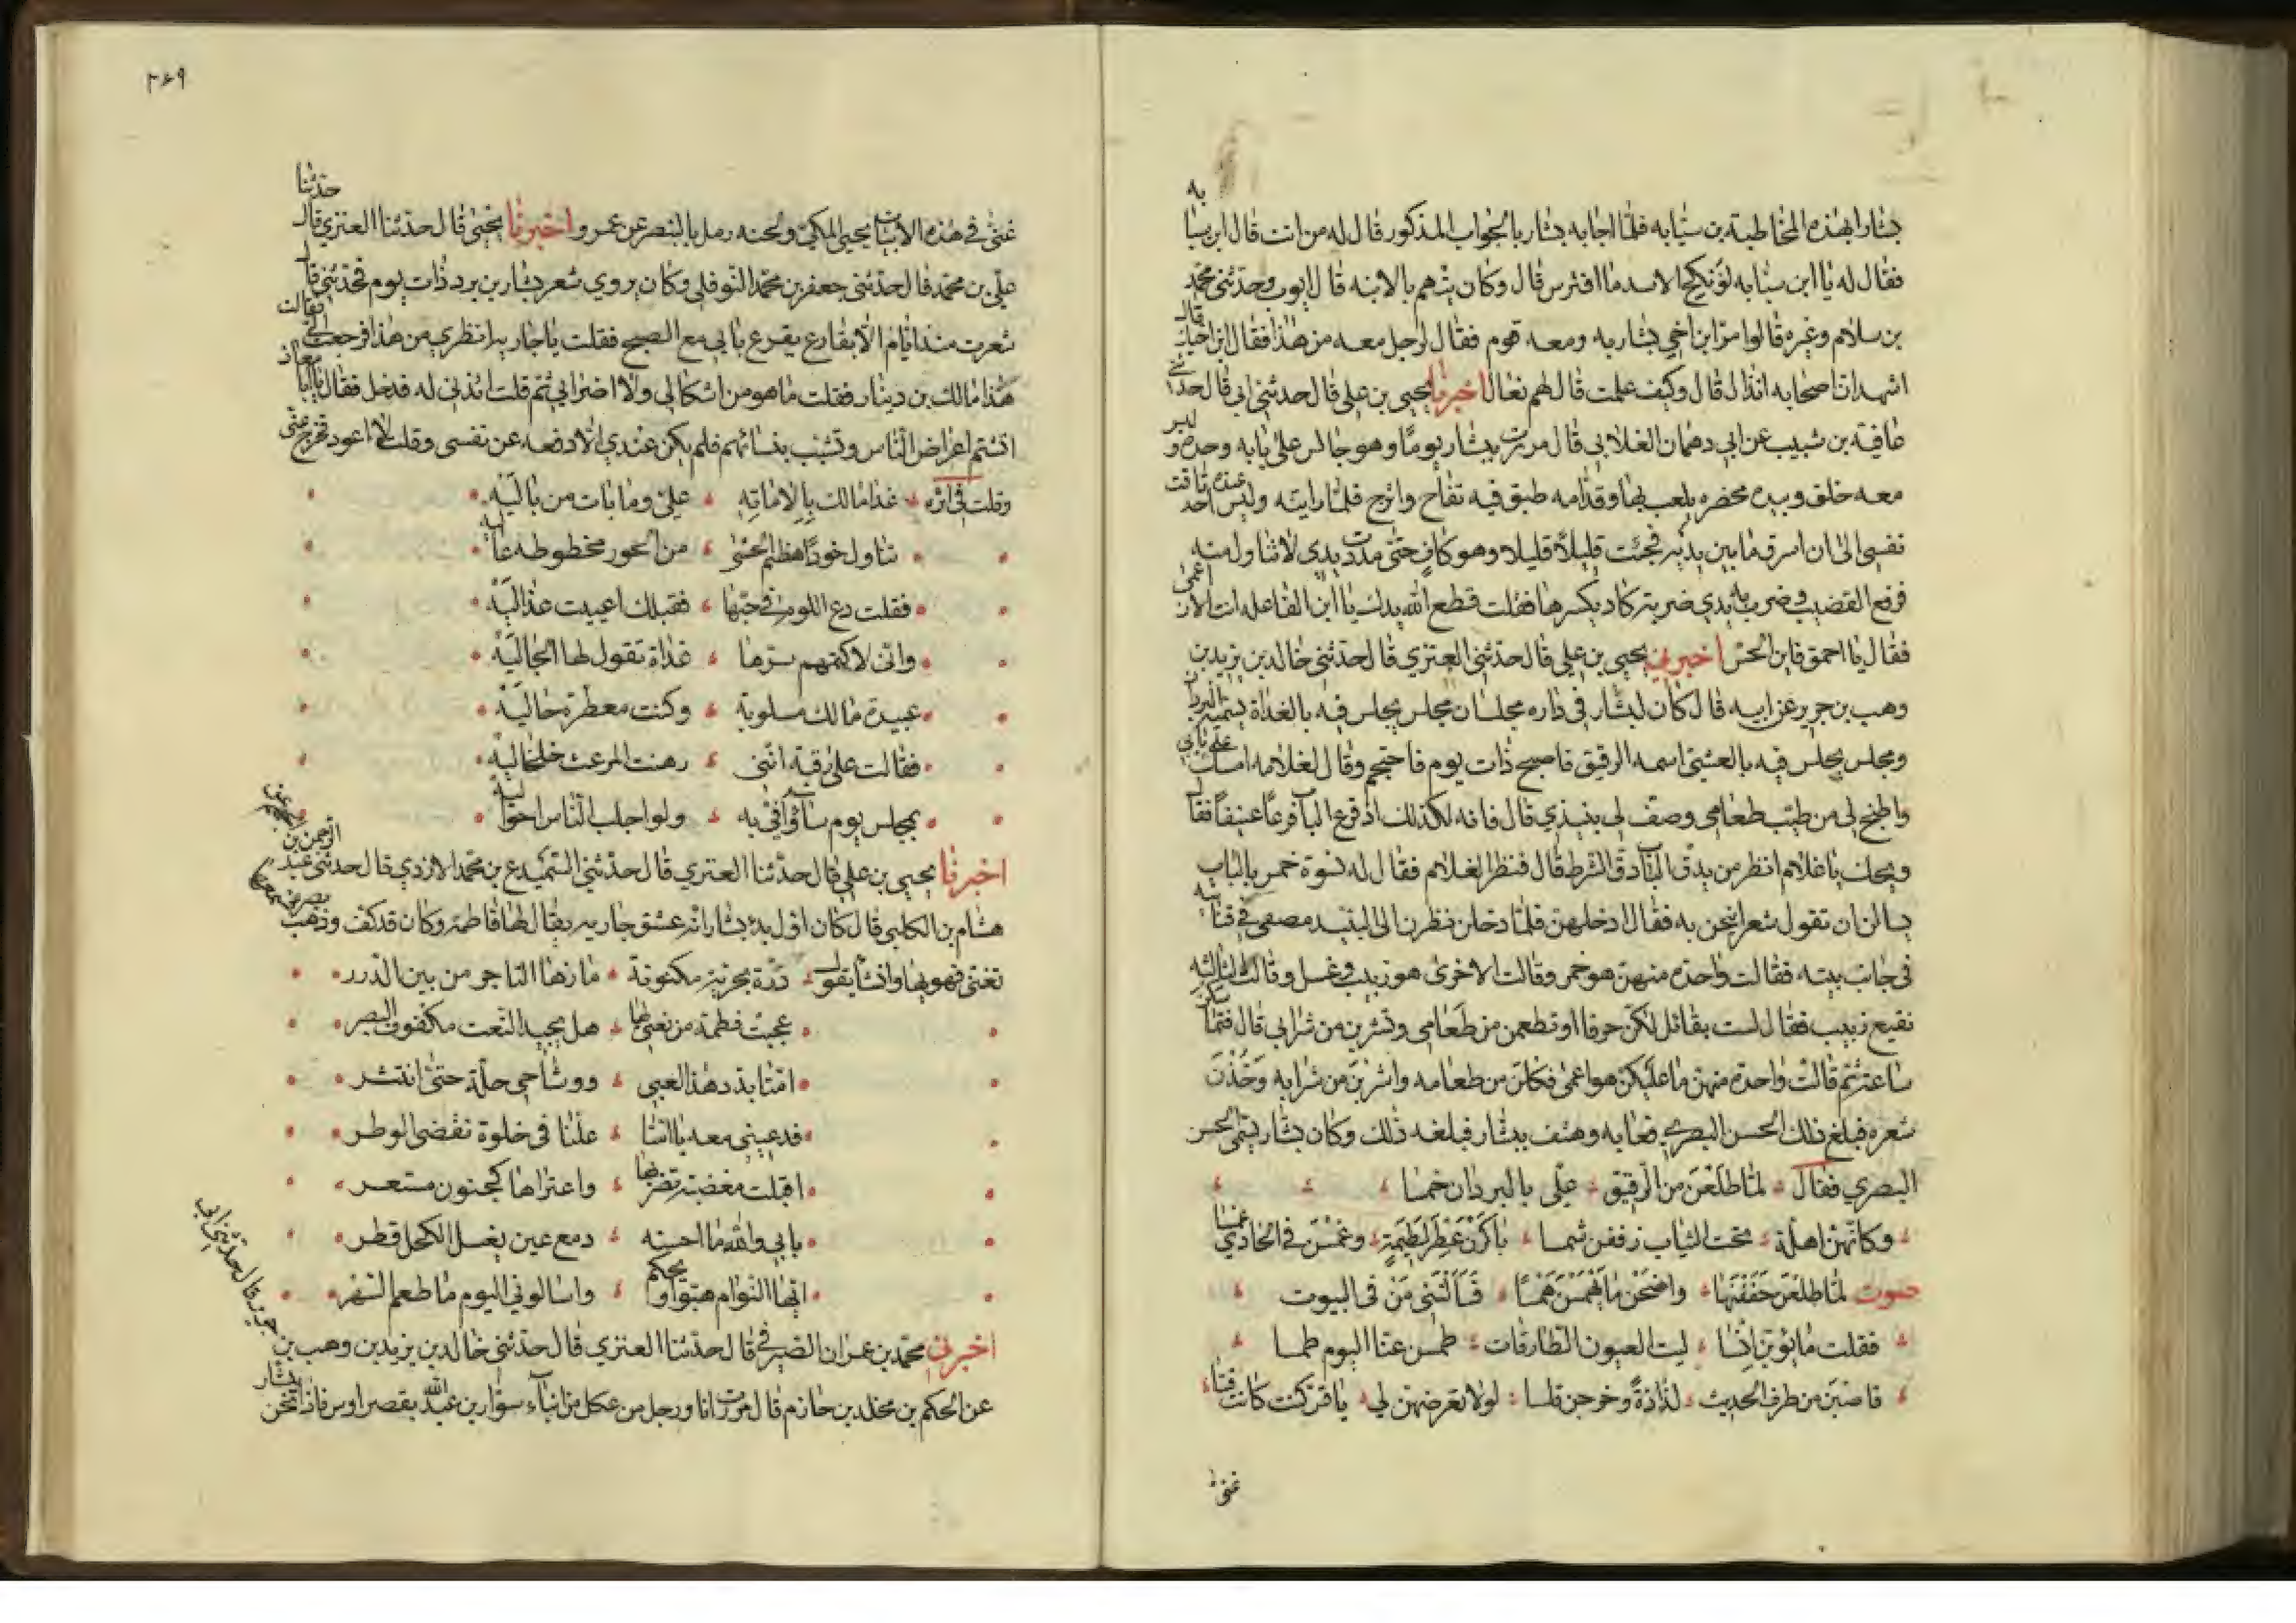 بشارا بهذه المخاطبة بن سيابه فلما اجابه بشار بالجواب المذكور قال له من انت قال ابن سيابه
فقال له يا ابن سيابه لو نكح الاسد ما افترس قال وكان يتهم بالابنه قال ايوب وحدثني محمد
بن سلام وغيره قالوا مر ابن اخي بشار به ومعه قوم فقال لرجل معه من هذا فقال ابن اخيك قال
اشهد ان اصحابه انذال قال وكيف علمت قال لهم نعال اخبرنا يحيى بن علي قال حدثني ابي قال حدثني
عافية بن شبيب عن ابي دهمان الغلابي قال مررت ببشار يوما وهو جالس على بابه وحده وليس
معه خلق وبيده مخصره يلعب بها وقدامه طبق فيه تفاح واترج فلما رايته وليس عنده احد تاقت
نفسي الى ان اسرق ما بين يديه فجئت قليلا قليلا وهو كاف حتى مددت يدي لاتناول منه
فرفع القضيب وضرب به يدي ضربة كاد يكسرها فقلت قطع الله يدك يا ابن الفاعله انت الان اعمى
فقال يا احمق فاين الحس اخبرني يحيى بن علي قال حدثني العنزي قال حدثني خالد بن يزيد بن
وهب بن جرير عن ابيه قال كان لبشار في داره مجلسان مجلس يجلس فيه بالغداة يسميه البردان
ومجلس يجلس فيه بالعشي اسمه الرقيق فاصبح ذات يوم فاحتجم وقال لغلامه امسك على بابي
واطبخ لي من طيب طعامي وصف لي نبيذي قال فانه لكذلك اذ قرع الباب قرعا عنيفا فقال
ويحك يا غلام انظر من يدق الباب دق الشرط قال فنظر الغلام فقال له نسوة خمس بالباب
يسالن ان تقول شعرا ينحن به فقال ادخلهن فلما دخلن نظرن الى النبيذ مصفى في قنانيه
في جانب بيته فقالت واحده منهن هو خمر وقالت الاخرى هو زبيب وعسل وقالت الثالثه
نقيع زبيب فقال لست بقائل لكن حرفا او تطعمن من طعامي وتشربن من شرابي قال فتماسكن
ساعة ثم قالت واحدة منهن ما عليكن هو اعمى فكلن من طعامه واشربن من شرابه وخذن
شعره فبلغ ذلك الحسن البصري فعابه وهتف ببشار فبلغه ذلك وكان بشار يسمي الحسن
البصري فقال لما طلعن من الرقيق علي بالبردان خمسا
وكانهن اهلة تحت الثياب زففن شمسا باكرن عطر لطيمة وغمسن في الجادي غمسا
صوت لما طلعن حففنها واصخن ما يهمسن همسا فسألنني من في البيوت
فقلت ما يؤين انسا ليت العيون الطارقات طمسن عنا اليوم طمسا
فاصبن من طرف الحديث لذاذة وخرجن قلسا لولا تعرضهن لي يا قس كنت كانت قسا
غنى
٢٦٩
غنى في هذه الابيات يحيى المكي ولحنه رمل بالبنصر عن عمرو اخبرنا يحيى قال حدثنا العنزي قال حدثنا
علي بن محمد قال حدثني جعفر بن محمد النوفلي وكان يروي شعر بشار بن برد ذات يوم فحدثني قال
شعرت منذ ايام الا بقارع يقرع بابي مع الصبح فقلت يا جاريه انظري من هذا فرجعت الي فقالت
هذا مالك بن دينار فقلت ما هو من اشكالي ولا اضرابي ثم قلت ائذني له فدخل فقال يا ابا معاذ
اتشتم اعراض الناس وتشبب بنسائهم فلم يكن عندي الا دفعه عن نفسي وقلت لا اعود فخرج عني
وقلت في اثره غدا مالك بملاماته علي وما بات من باليه
تناول خودا هظيم الحشى من الحور محظوظة عاليه
فقلت دع اللوم في حبها فقبلك اعييت عذاليه
واني لاكتمهم سرها غداة تقول لها الجاليه
عبيدة مالك مسلوبة وكنت معطرة حاليه
فقالت على رقبة انني رهنت المرعث خلخاليه
بمجلس يوم ساوافي به ولو اجلب الناس احواليه
اخبرنا يحيى بن علي قال حدثنا العنزي قال حدثني السميدع بن محمد الازدي قال حدثني عبد الرحمن بن
هشام بن الكلبي قال كان اول بدء بشار انه عشق جارية يقال لها فاطمة وكان قد كف وذهب بصره فسمعها
تغني فهويها وانشا يقول درة بحرية مكنونة مازها التاجر من بين الدرر
عجبت فطمة من نعتي لها هل يجيد النعت مكفوف البصر
امتا بدد هذا لعبي ووشاحي حله حتى انتثر
فدعيني معه يا امتا علنا في خلوة نقضي الوطر
اقبلت مغضبة تضربها واعتراها كجنون مستعر
بابي والله ما احسنه دمع عين يغسل الكحل قطر
ايها النوام هبوا ويحكم واسالوني اليوم ما طعم السهر
اخبرني محمد بن عمران الصيرفي قال حدثنا العنزي قال حدثني خالد بن يزيد بن وهب بن جرير قال حدثني ابي
عن الحكم بن مخلد بن حازم قال مررت انا ورجل من عكل من ابناء سوار بن عبد الله بقصر اوس فاذا نحن ببشار